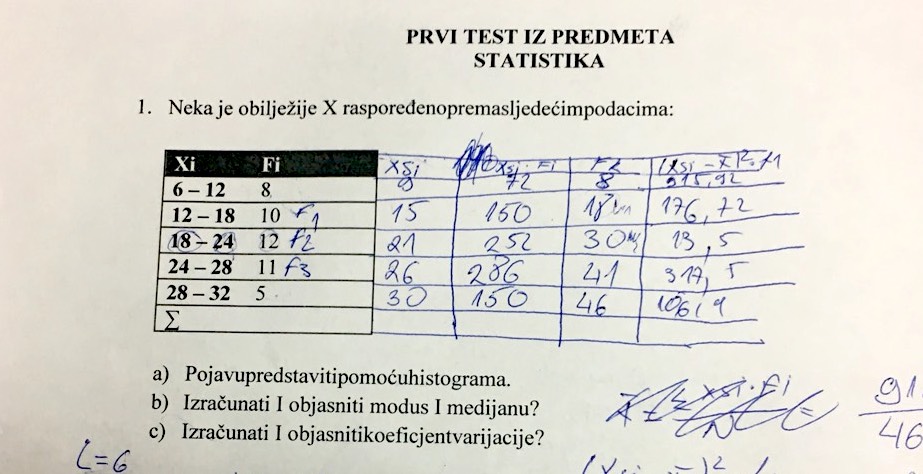 PRVI TEST IZ PREDMETA
STATISTIKA
1. Neka je obilježije X raspoređenopremasljedećimpodacima:
Xi Fi Xsi Xsi · Fi
6 – 12 8 9 72 8 915,92
12 – 18 10 F1 15 150 18 176,72
18 – 24 12 f2 21 252 30 13,5
24 – 28 11 f3 26 286 41 317,5
28 – 32 5 30 150 46 106,9
Σ
a) Pojavupredstavitipomoćuhistograma.
b) Izračunati I objasniti modus I medijanu?
c) Izračunati I objasnitikoeficjentvarijacije?
91
46
L=6